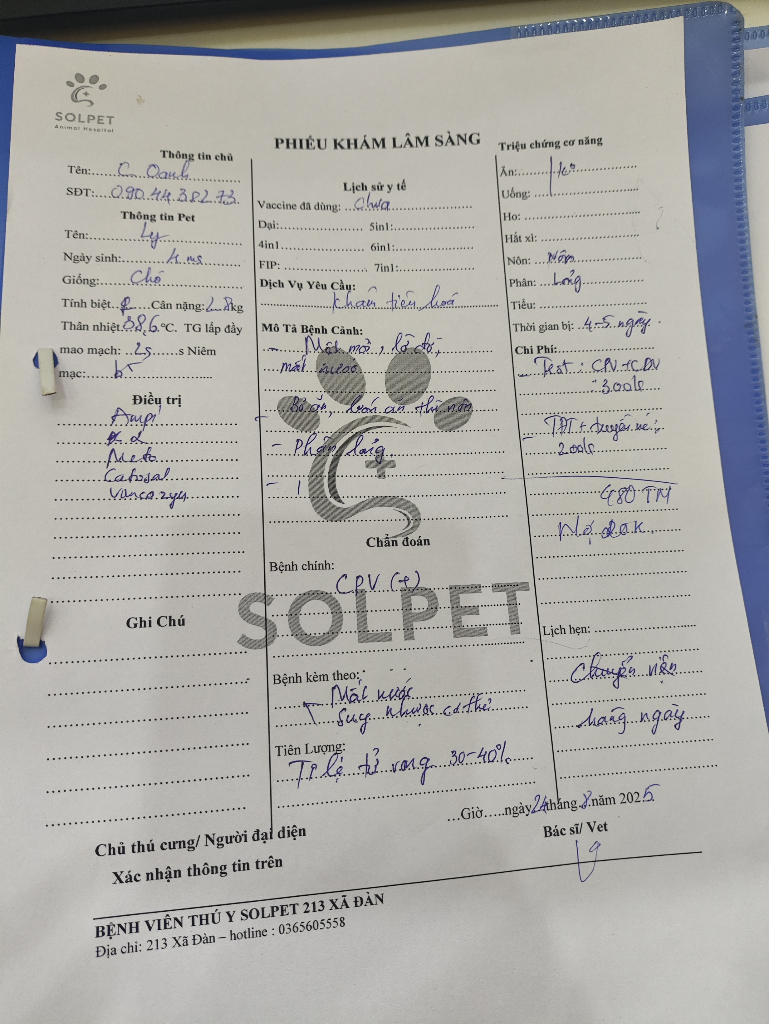 SOLPET
Animal Hospital
PHIẾU KHÁM LÂM SÀNG
Thông tin chủ
Tên: C. Oanh
SĐT: 090.44.382.73
Thông tin Pet
Tên: Ly
Ngày sinh: 4 ms
Giống: Chó
Tính biệt ♀ Cân nặng: 2.8kg
Thân nhiệt 38,6 °C. TG lấp đầy
mao mạch: 2s s Niêm
mạc: b
Điều trị
Ampi
Meto
Catosal
Vancozyn
Ghi Chú
Lịch sử y tế
Vaccine đã dùng: chưa
Dại: 5in1:
4in1 6in1:
FIP: 7in1:
Dịch Vụ Yêu Cầu:
Khám tiêu hoá
Mô Tả Bệnh Cảnh:
- Mệt mỏi, lờ đờ,
mất nước
- Bỏ ăn, ăn thì nôn
- Phân lỏng
-
Chẩn đoán
Bệnh chính:
CPV (+)
SOLPET
Bệnh kèm theo:
Mất nước
Suy nhược cơ thể
Tiên Lượng:
Tỉ lệ tử vong 30-40%
Triệu chứng cơ năng
Ăn: ko
Uống:
Ho:
Hắt xì:
Nôn: Nôn
Phân: Lỏng
Tiểu:
Thời gian bị: 4-5 ngày
Chi Phí:
- Test: CPV + CDV
300k
- TĐT + truyền
200k
480 TM
Nợ 20K
Lịch hẹn:
Chuyển viện
hàng ngày
Giờ ngày 24 tháng 8 năm 2025
Bác sĩ/ Vet
Chủ thú cưng/ Người đại diện
Xác nhận thông tin trên
BỆNH VIÊN THÚ Y SOLPET 213 XÃ ĐÀN
Địa chỉ: 213 Xã Đàn – hotline : 0365605558